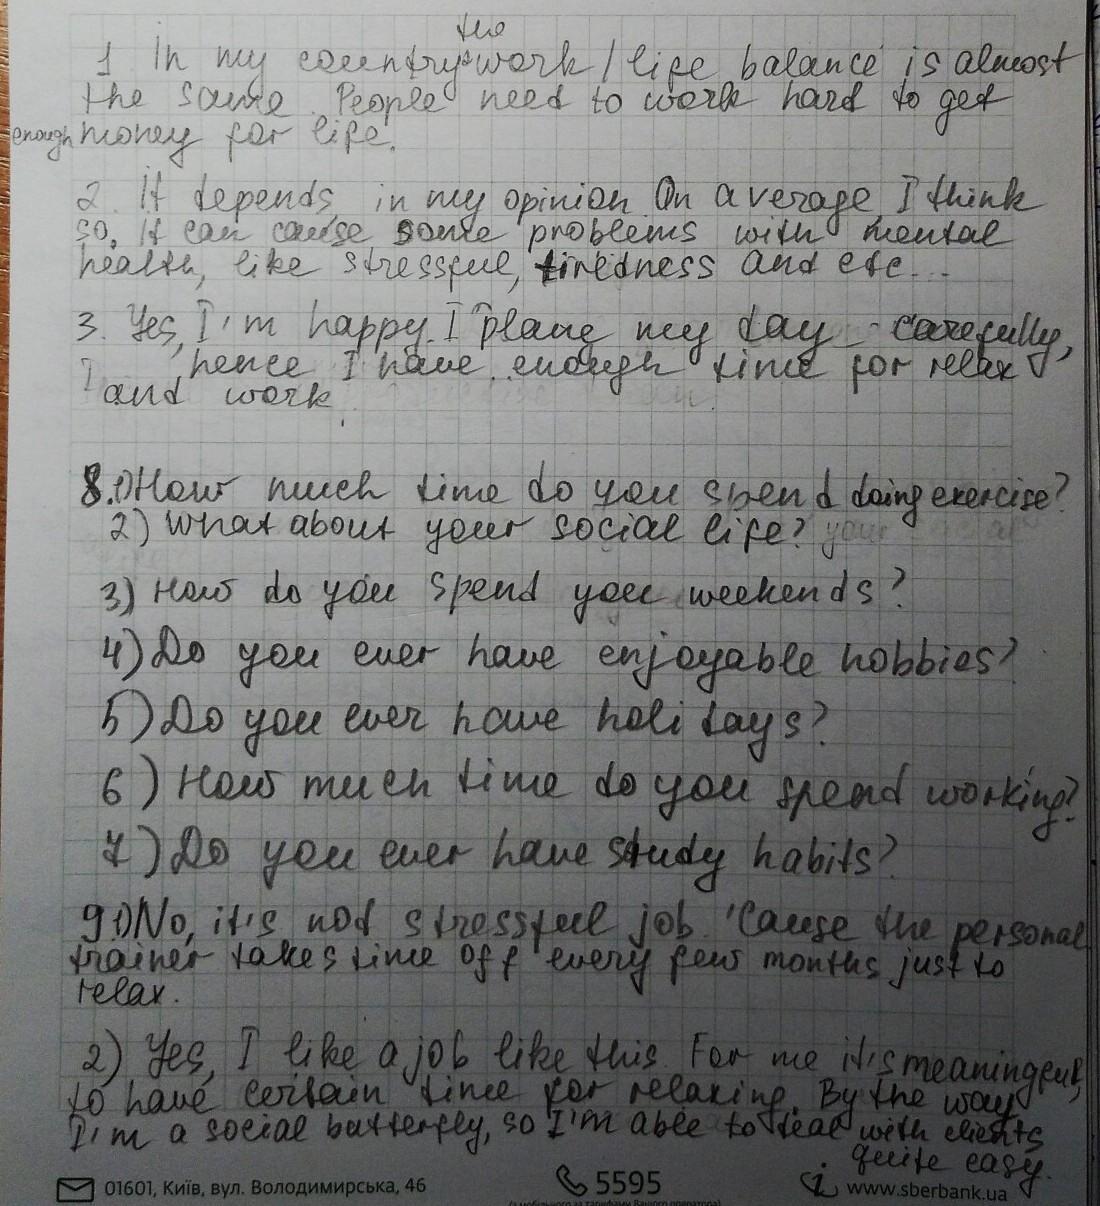 the
1 In my country work / life balance is almost
the same. People need to work hard to get
enough money for life.
2. It depends in my opinion. On average I think
so. It can cause some problems with mental
health, like stressful, tiredness and etc...
3. Yes, I'm happy. I plane my day carefully,
hence I have enough time for relax
and work.
8.1) How much time do you spend doing exercise?
2) What about your social life?
3) How do you spend you weekends?
4) Do you ever have enjoyable hobbies?
5) Do you ever have holidays?
6) How much time do you spend working?
7) Do you ever have study habits?
9.1) No, it's not stressful job. 'Cause the personal
trainer takes time off every few months just to
relax.
2) Yes, I like a job like this. For me it's meaningful,
to have certain time for relaxing. By the way
I'm a social butterfly, so I'm able to deal with clients
quite easy.
01601, Київ, вул. Володимирська, 46 5595 www.sberbank.ua